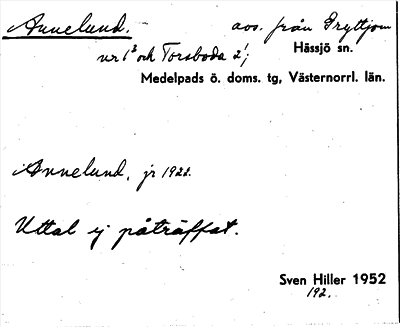 Annelund. avs. från Gryttjom
nr 1³ och Torsboda 2¹; Hässjö sn.
Medelpads ö. doms. tg, Västernorrl. län.
Annelund, jr 1928.
Uttal ej påträffat.
Sven Hiller 1952
192.